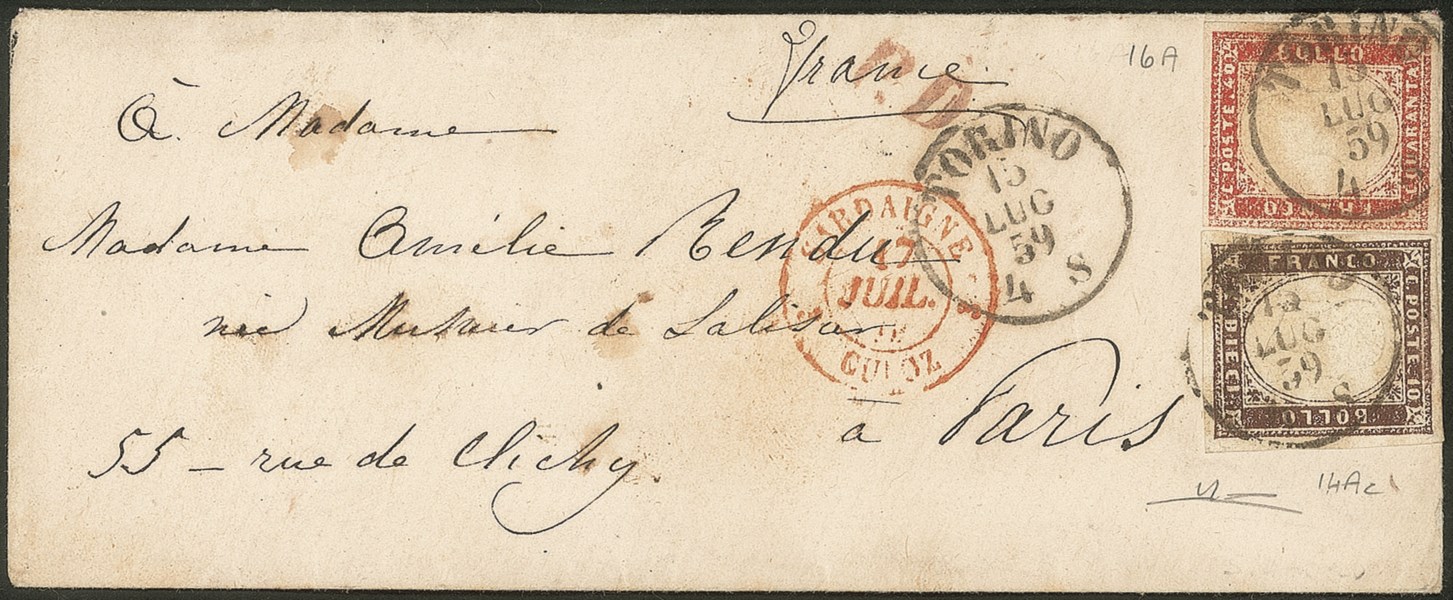 France
16A
P.D.
À Madame
Madame Amélie Rendu
née de
55 – rue de Clichy
à Paris
TORINO
15
LUG
59
4 S
SARDAIGNE
17
JUIL.
CULOZ
TORINO
15
LUG
59
4
BOLLO
C. POSTE 40
C. QUARANTA
FRANCO
15
LUG
59
S
FRANCO
C. POSTE 10
C. DIECI
BOLLO
14Ac